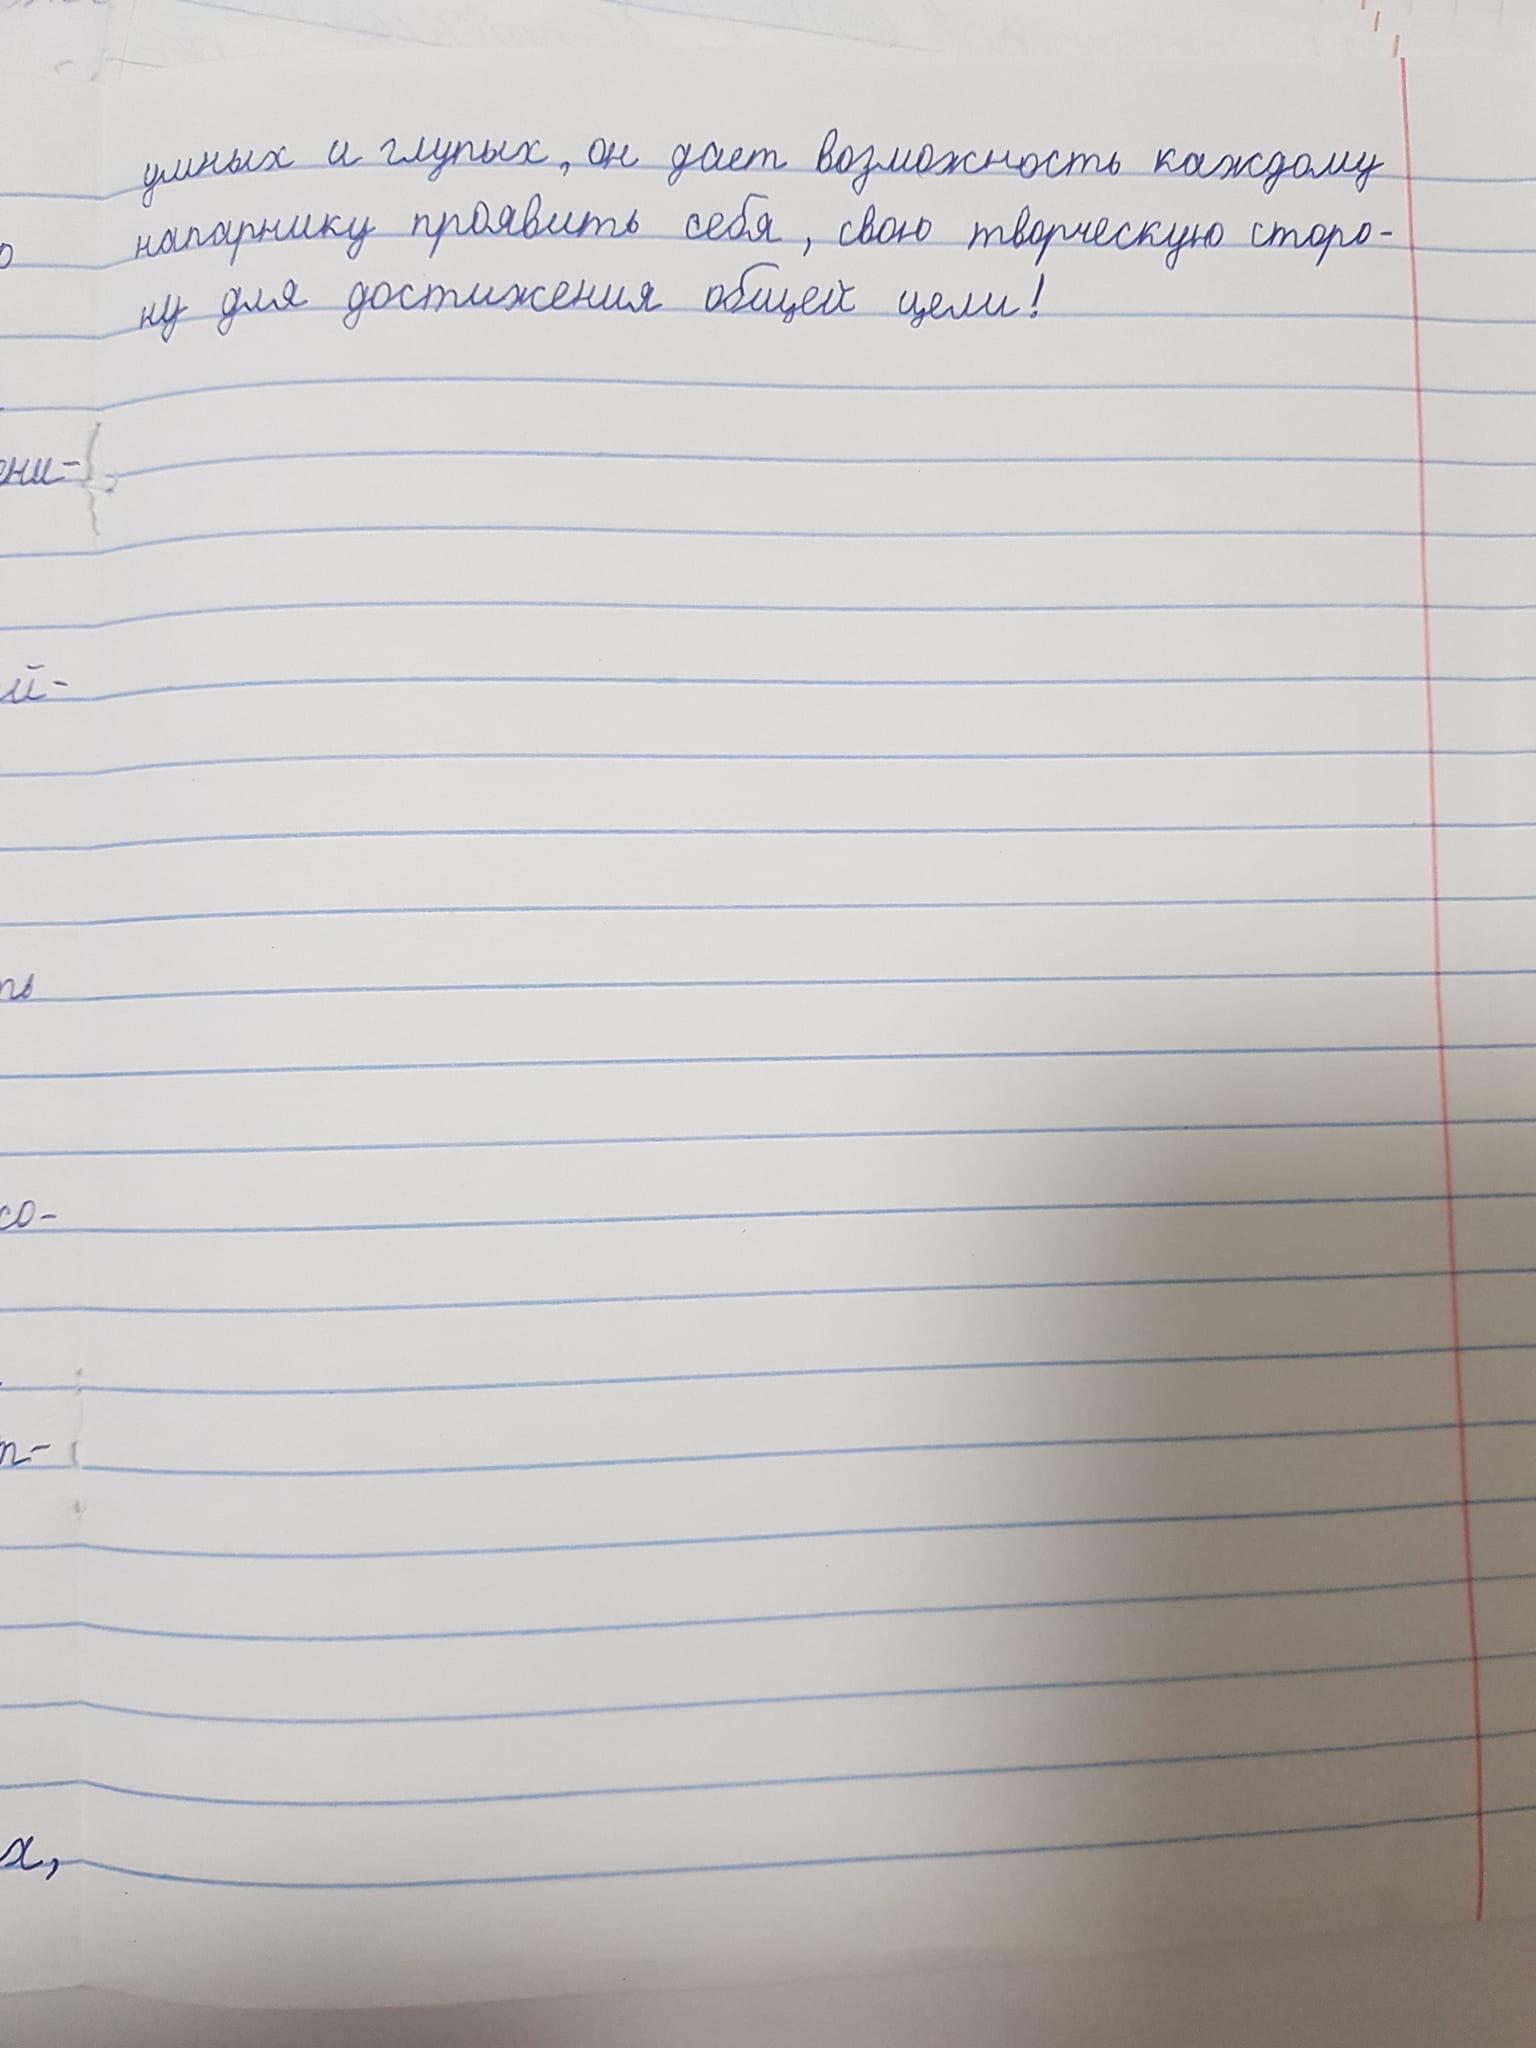 умных и глупых, он дает возможность каждому
напарнику проявить себя, свою творческую сторо-
ну для достижения общей цели!